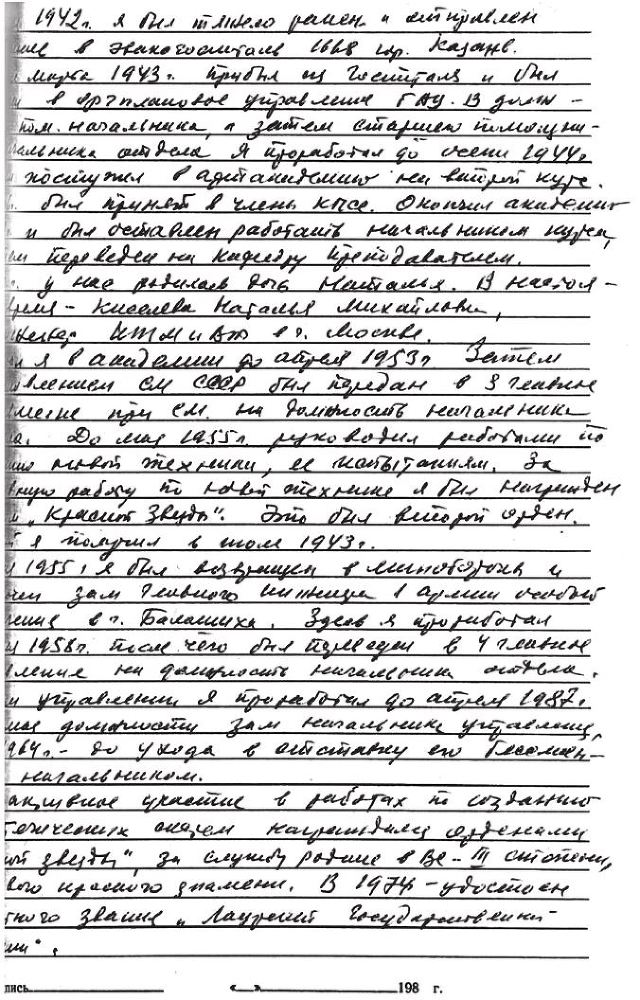 1942г. я был тяжело ранен и отправлен
в эвакогоспиталь 1668 гор. Казань.
марта 1943г. прибыл из госпиталя и был
в оргплановое управление ГАУ. В долж-
пом. начальника, а затем старшего помощни-
чальника отдела я проработал до осени 1944г
поступил в артакадемию на второй курс.
был принят в члены КПСС. Окончил академию
и был оставлен работать начальником курса,
переведен на кафедру преподавателем.
у нас родилась дочь Наталья. В настоя-
время - Киселева Наталья Михайловна,
инженер ИТМ и ВТ в г. Москве.
я в академии до апреля 1953г. Затем
влением СМ СССР был передан в 3 главное
при СМ. на должность начальника
ла. До мая 1955г. руководил работами по
новой техники, ее испытаниям. За
вную работу по новой технике я был награжден
„Красной Звезды". Это был второй орден.
й я получил в том 1943г.
1955г я был возвращен в минобороны и
чен зам главного инженера 1 армии особого
чения в г. Балашиха. Здесь я проработал
1958г. после чего был переведен в 4 главное
вление на должность начальника отдела.
управлении я проработал до апреля 1987г.
должности зам начальника управления,
964г. - до ухода в отставку его бессмен-
начальником.
активное участие в работах по созданию
систем награждался орденами
ой звезды", за службу родине в ВС - III степени,
вого красного знамени. В 1974 - удостоен
тного звания „Лауреат Государственной
мии".
пись «   » 198 г.